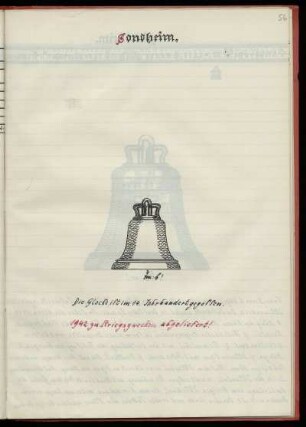 56
Sondheim.
Ton: b!
Die Glocke ist im 14. Jahrhundert gegossen.
1942 zu Kriegszwecken abgeliefert!